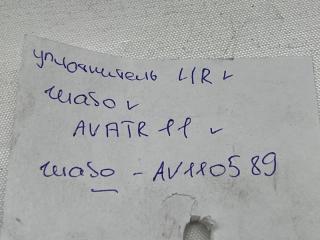 уплотнитель L/R ✓
шаво ✓
AVATR 11 ✓
шаво - AV110589